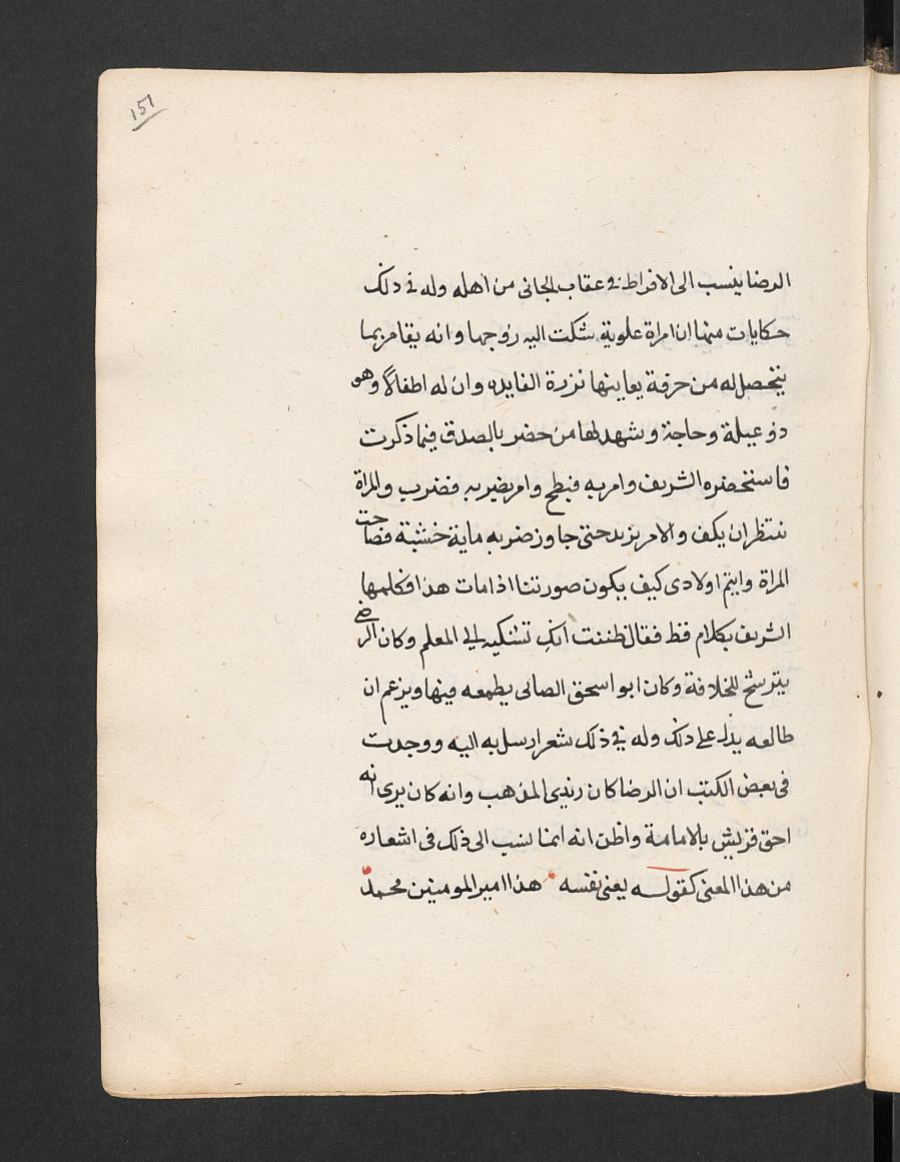 151
الرضا ينسب الى الافراط فى عقاب الجانى من اهله وله فى ذلك
حكايات منها ان امراة علوية شكت اليه زوجها وانه يقامر بما
يتحصل له من حرفة يعاينها نزرة الفايده وان له اطفالا وهو
ذو عيلة وحاجة وشهد لها من حضر بالصدق فيما ذكرت
فاستحضره الشريف وامر به فبطح وامر بضربه فضرب والمراة
تنتظر ان يكف والامر يزيد حتى جاوز ضربه ماية خشبة فصاحت
المراة وايتم اولادى كيف يكون صورتنا اذا مات هذا فكلمها
الشريف بكلام فظ فقال ظننت انك تشتكيه الى المعلم وكان الرضى
يترشح للخلافة وكان ابو اسحق الصابى يطمعه فيها ويزعم ان
طالعه يدل على ذلك وله فى ذلك شعر ارسل به اليه ووجدت
فى بعض الكتب ان الرضا كان زيدى المذهب وانه كان يرى انه
احق قريش بالامامة واظن انه انما نسب الى ذلك فى اشعاره
من هذا المعنى كقوله يعنى نفسه هذا امير المومنين محمد